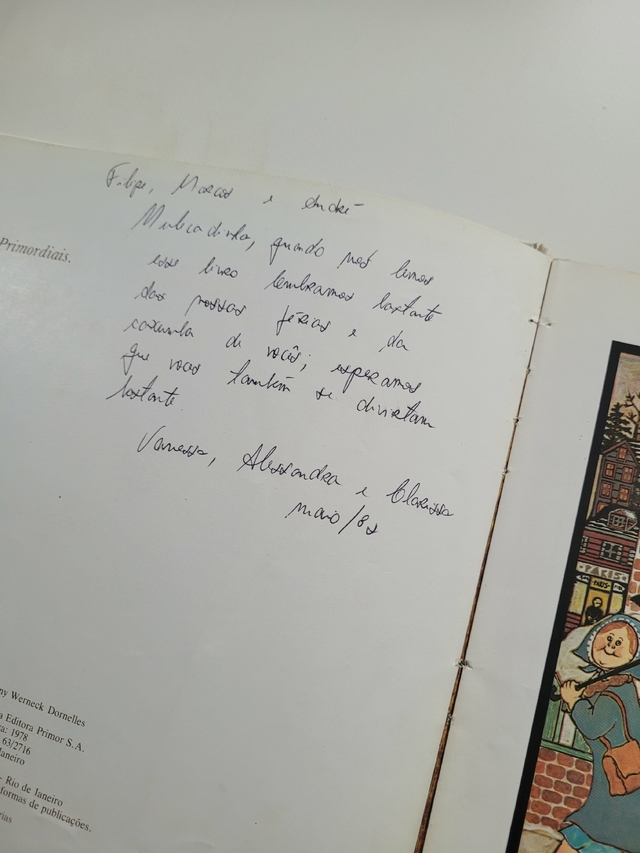 Primordiais.
Filipe, Marcos e André
Mulecadinha, quando nós lemos
esse livro lembramos bastante
das nossas férias e da
caxumba de vocês; esperamos
que vocês também se divirtam
bastante.
Vanessa, Alessandra e Clarissa
maio/82
PARIS
PARIS
ny Werneck Dornelles
a Editora Primor S.A.
ra: 1978
63/2716
Janeiro
- Rio de Janeiro
formas de publicações.
rias